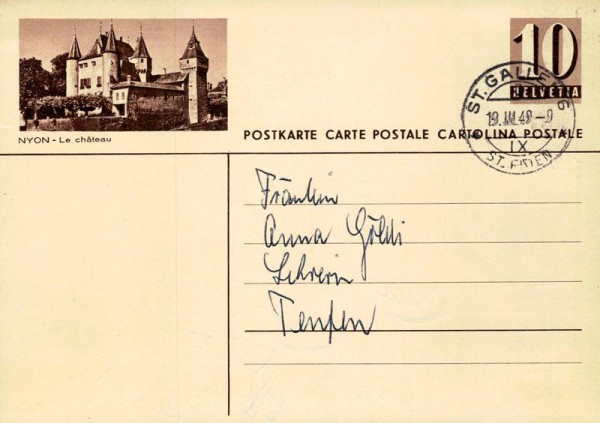 10
HELVETIA
ST. GALLEN 6
19.III.40-9
IX
ST. FIDEN
NYON - Le château
POSTKARTE CARTE POSTALE CARTOLINA POSTALE
Fräulein
Anna Göldi
Teufen